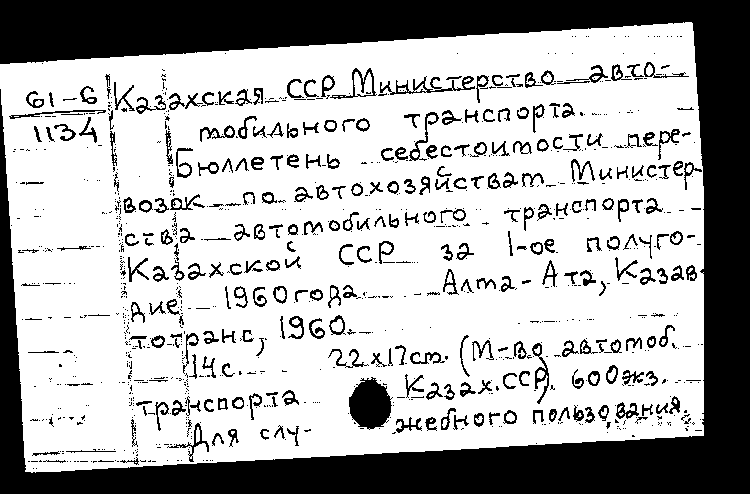 61-6
1134
Казахская ССР Министерство авто-
мобильного транспорта.
Бюллетень себестоимости пере-
возок по автохозяйствам Министер-
ства автомобильного транспорта
Казахской ССР за 1-ое полуго-
дие 1960 года. Алма-Ата, Казав-
тотранс, 1960.
14 с. 22x17см. (М-во автомоб.
транспорта Казах.ССР). 600 экз.
Для слу- жебного пользования.